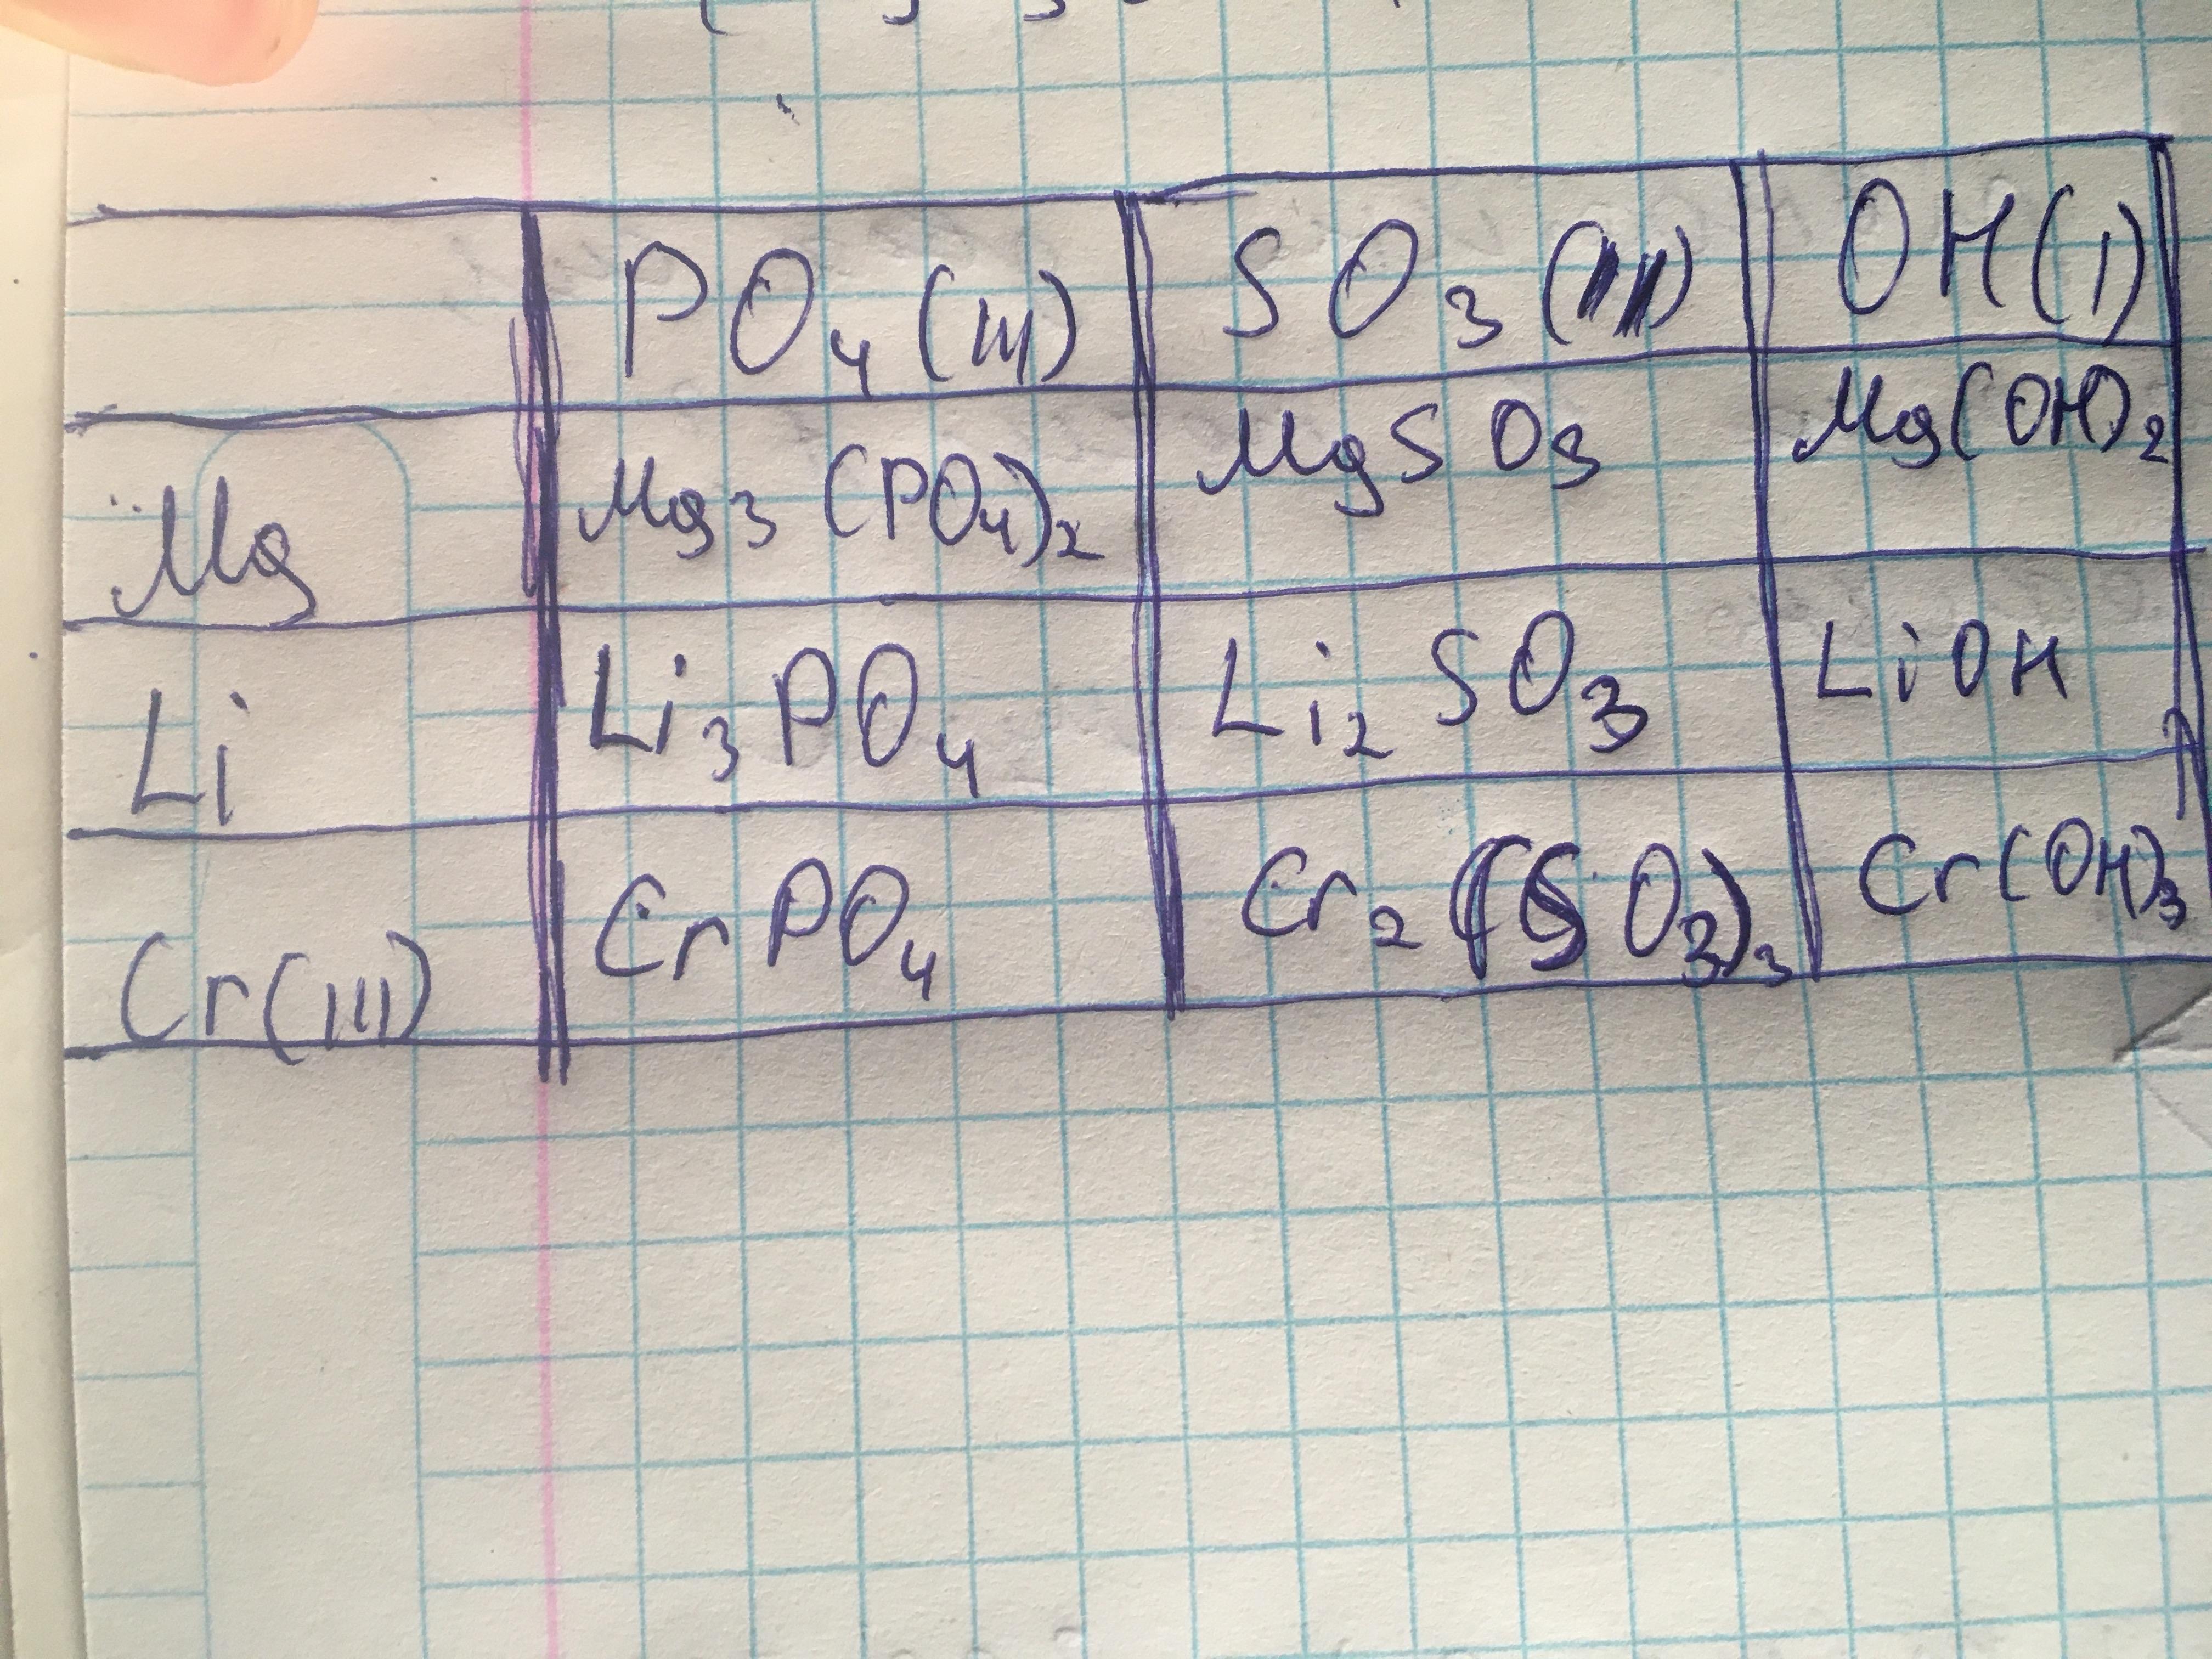 PO₄(III) SO₃(II) OH(I)
Mg Mg₃(PO₄)₂ MgSO₃ Mg(OH)₂
Li Li₃PO₄ Li₂SO₃ LiOH
Cr(III) CrPO₄ Cr₂(SO₃)₃ Cr(OH)₃